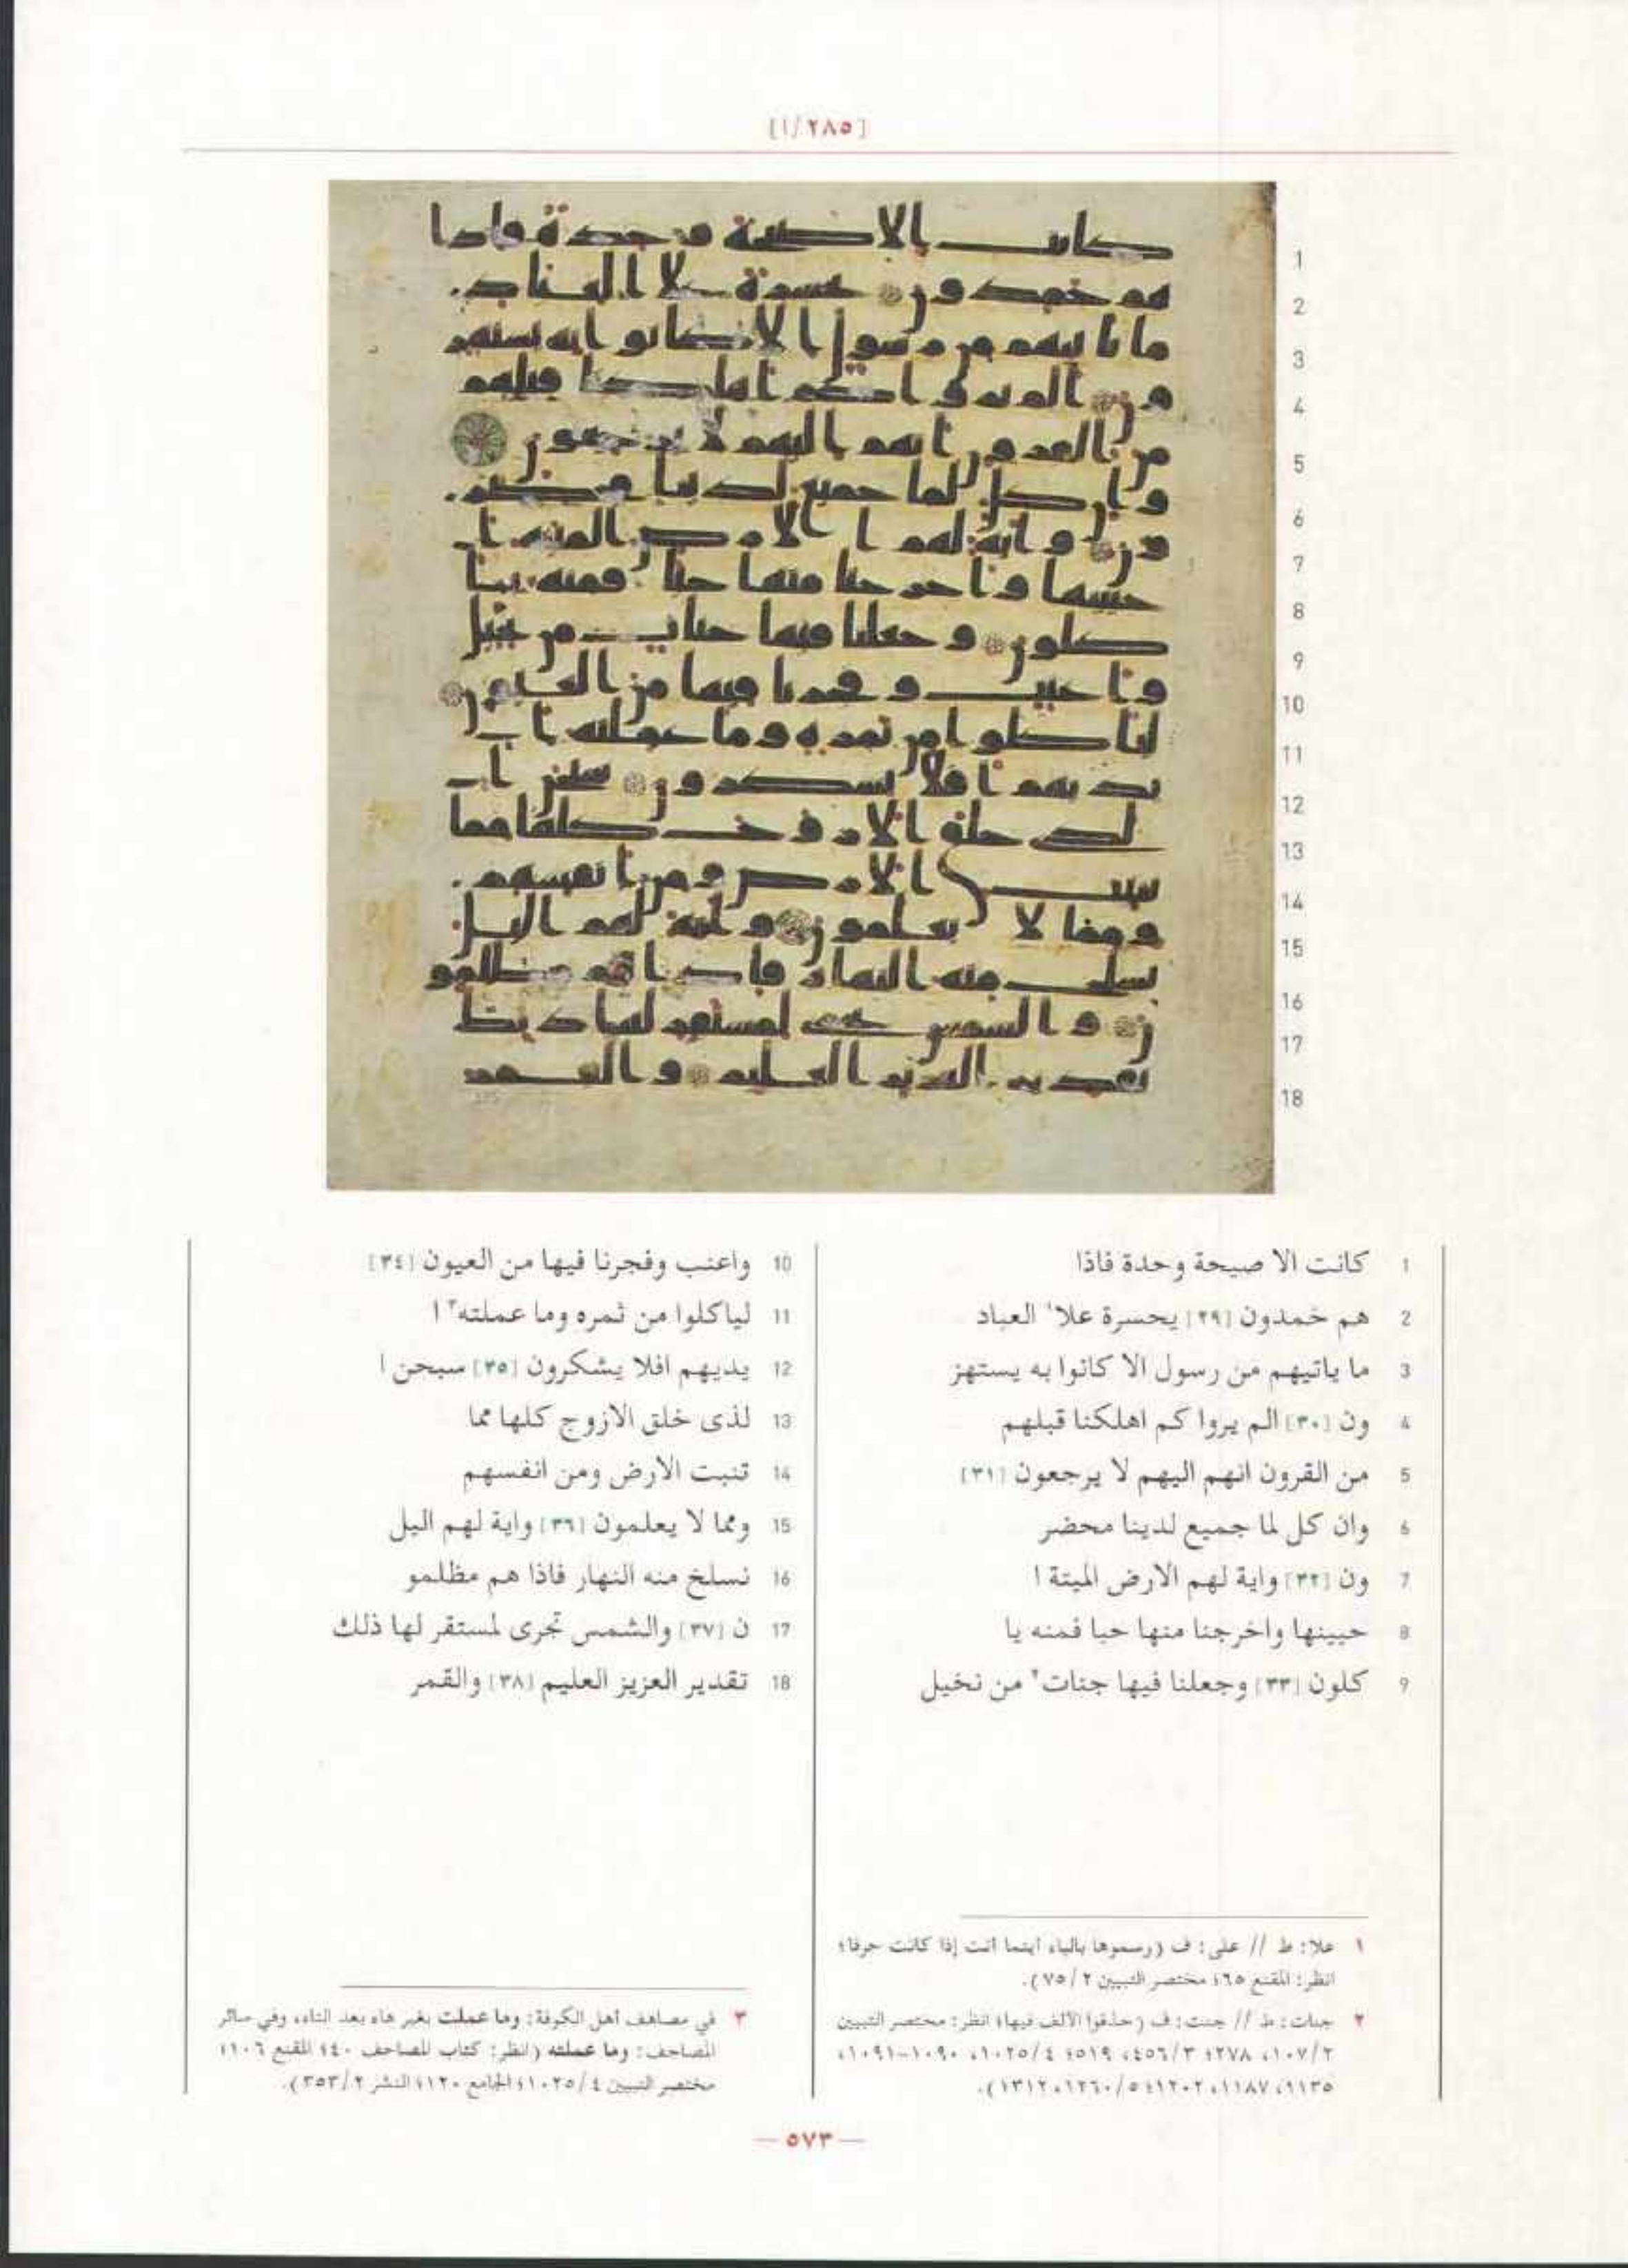 [٢٨٥/ا]
1 كانت الا صيحة وحدة فاذا
2 هم خمدون [٢٩] يحسرة علا١ العباد
3 ما ياتيهم من رسول الا كانوا به يستهز
4 ون [٣٠] الم يروا كم اهلكنا قبلهم
5 من القرون انهم اليهم لا يرجعون [٣١]
6 وان كل لما جميع لدينا محضر
7 ون [٣٢] واية لهم الارض الميتة ا
8 حيينها واخرجنا منها حبا فمنه يا
9 كلون [٣٣] وجعلنا فيها جنات٢ من نخيل
10 واعنب وفجرنا فيها من العيون [٣٤]
11 لياكلوا من ثمره وما عملته٣ ا
12 يديهم افلا يشكرون [٣٥] سبحن ا
13 لذى خلق الازوج كلها مما
14 تنبت الارض ومن انفسهم
15 ومما لا يعلمون [٣٦] واية لهم اليل
16 نسلخ منه النهار فاذا هم مظلمو
17 ن [٣٧] والشمس تجرى لمستقر لها ذلك
18 تقدير العزيز العليم [٣٨] والقمر
١ علا: ط // على: ف (رسموها بالياء أينما أتت إذا كانت حرفا؛
انظر: المقنع ٦٥؛ مختصر التبيين ٢/٧٥).
٢ جنات: ط // جنت: ف (حذفوا الألف فيها؛ انظر: مختصر التبيين
٢/١٠٧، ٢٧٨؛ ٣/٤٥٦، ٥١٩؛ ٤/١٠٢٥، ١٠٩٠-١٠٩١،
١١٣٥، ١١٨٧، ١٢٠٢؛ ٥/١٢٦٠، ١٣١٢).
٣ في مصاحف أهل الكوفة: وما عملت بغير هاء بعد التاء، وفي سائر
المصاحف: وما عملته (انظر: كتاب المصاحف ٤٠؛ المقنع ١٠٦؛
مختصر التبيين ٤/١٠٢٥؛ الجامع ١٢٠؛ النشر ٢/٣٥٣).
— ٥٧٣ —